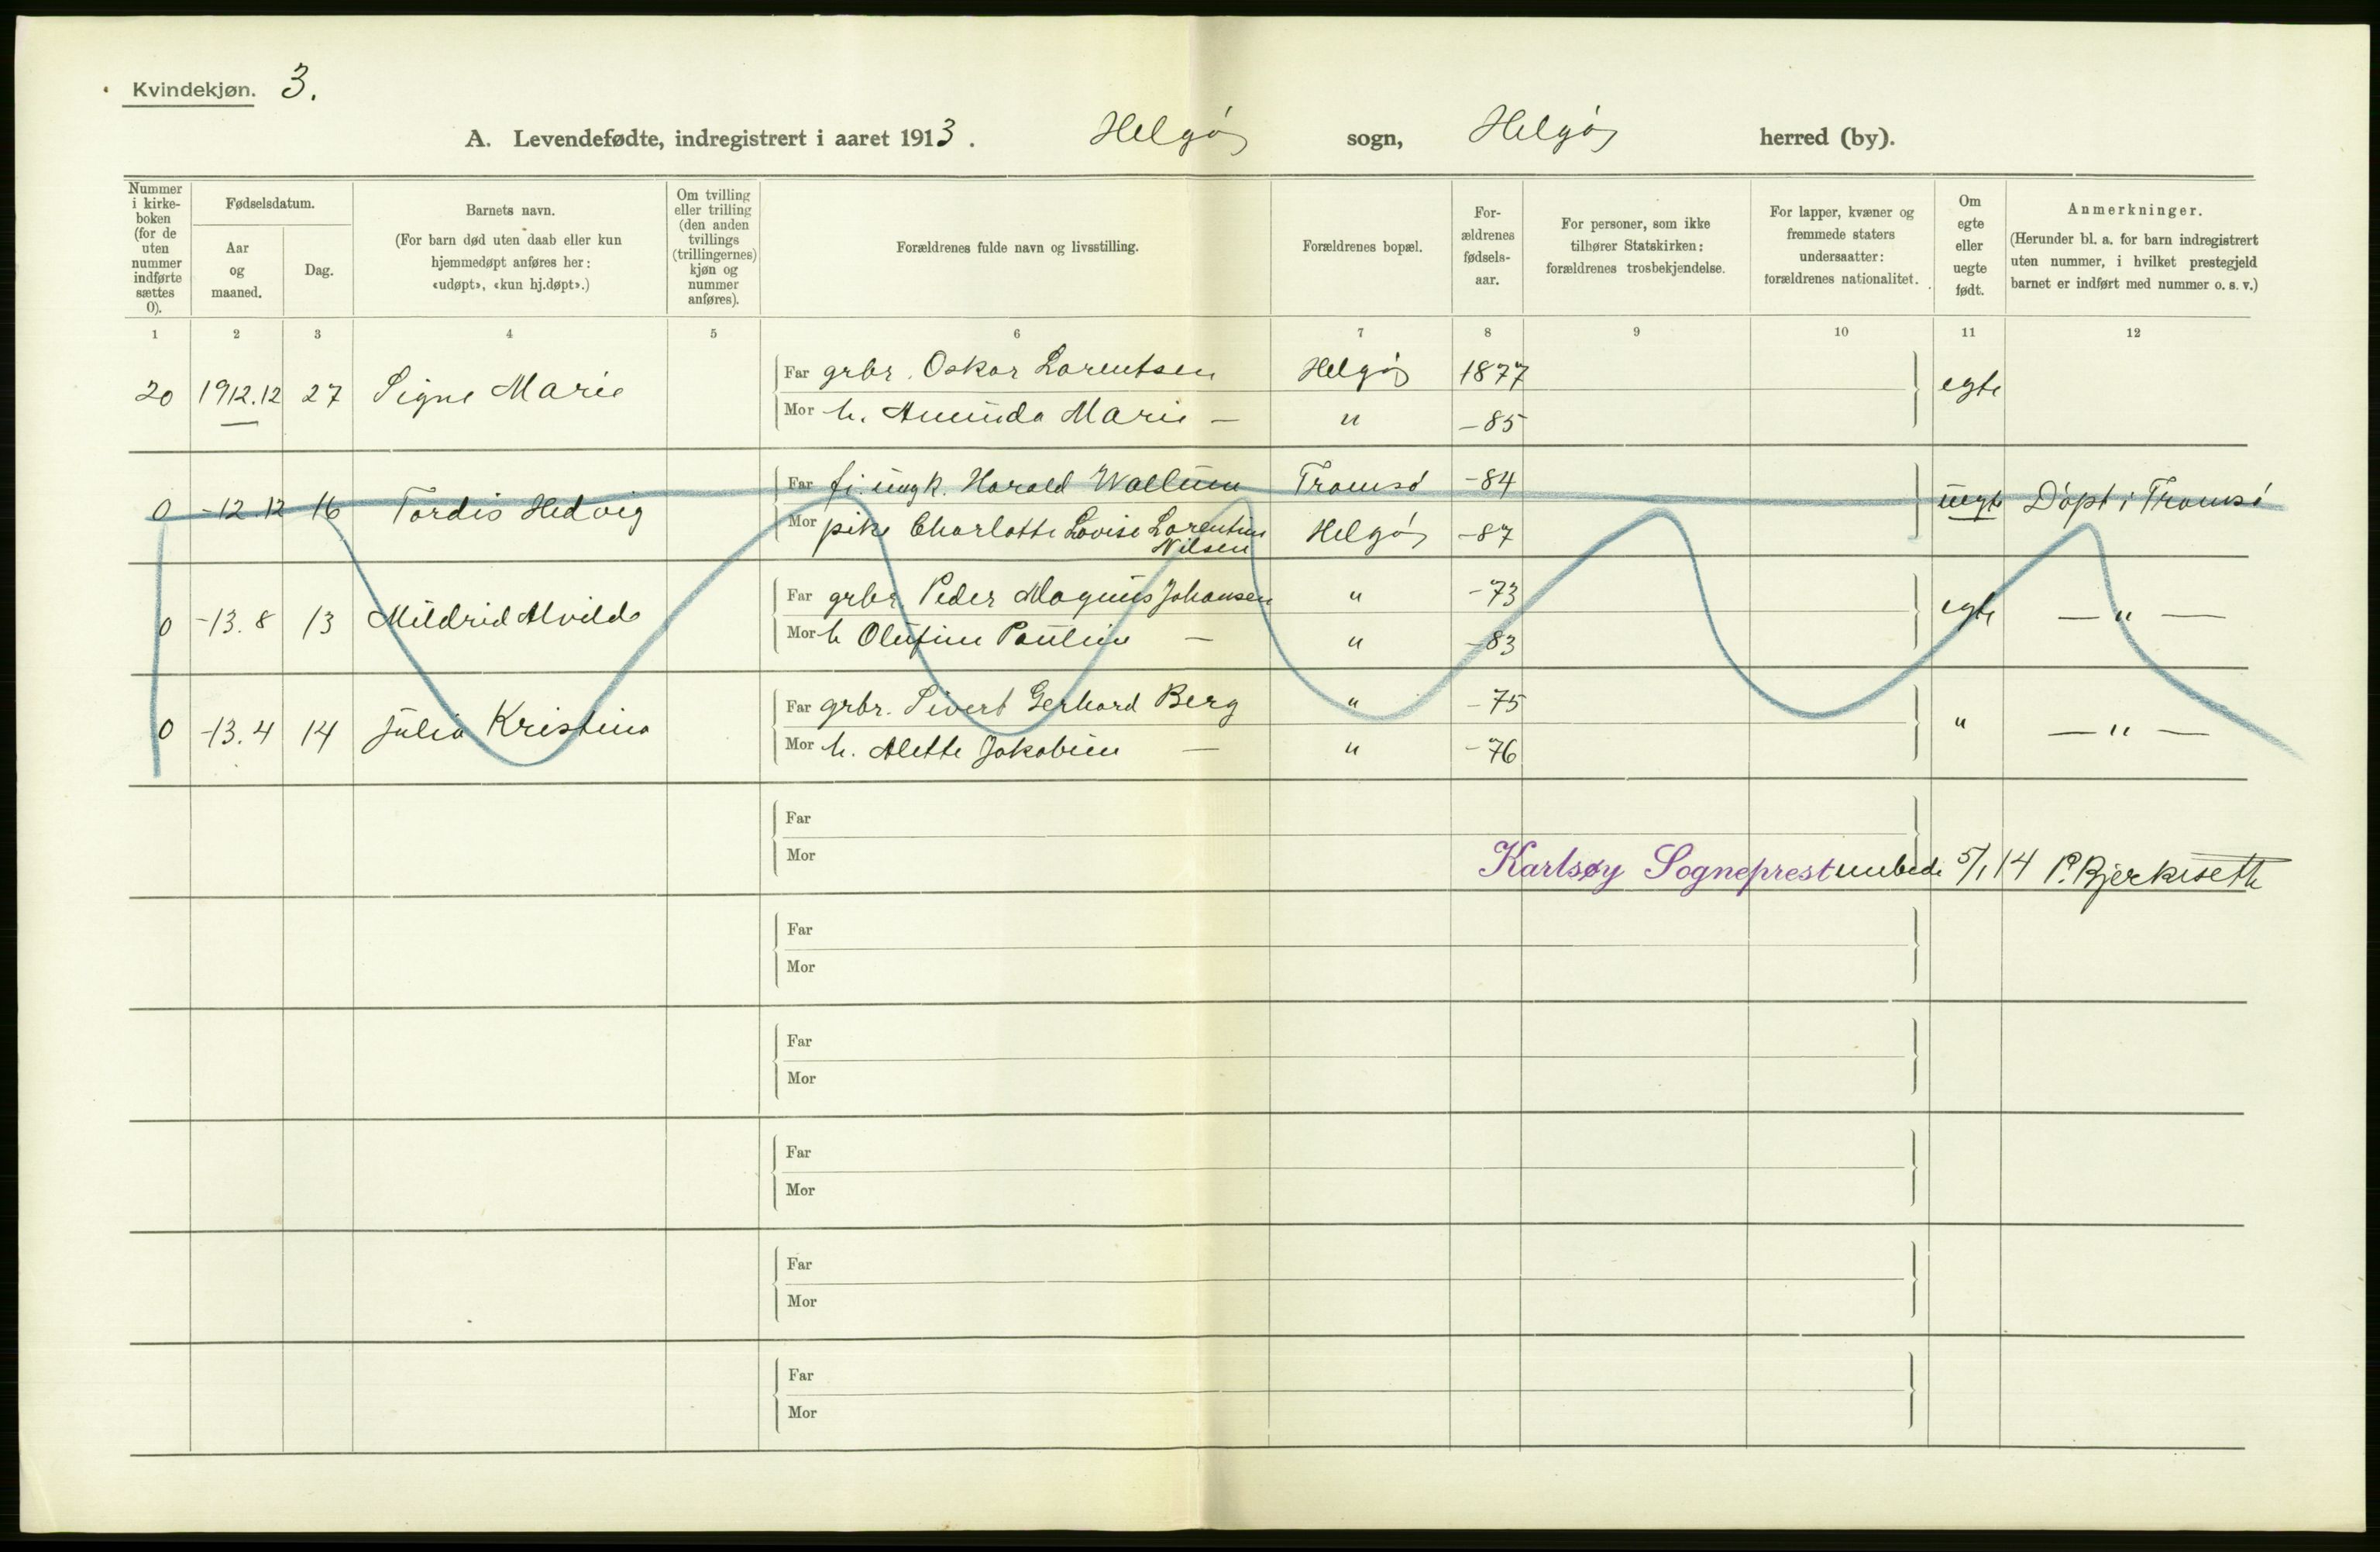 Kvindekjøn. 3.
A. Levendefødte, indregistrert i aaret 1913. Helgøy sogn, Helgøy herred (by).
Nummer i kirke-boken (for de uten nummer indførte sættes 0).
Fødselsdatum.
Aar og maaned.
Dag.
Barnets navn.
(For barn død uten daab eller kun hjemmedøpt anføres her: «udøpt», «kun hj.døpt».)
Om tvilling eller trilling (den anden tvillings (trillingernes) kjøn og nummer anføres).
Forældrenes fulde navn og livsstilling.
Forældrenes bopæl.
For-ældrenes fødsels-aar.
For personer, som ikke tilhører Statskirken: forældrenes trosbekjendelse.
For lapper, kvæner og fremmede staters undersaatter: forældrenes nationalitet.
Om egte eller uegte født.
Anmerkninger.
(Herunder bl. a. for barn indregistrert uten nummer, i hvilket prestegjeld barnet er indført med nummer o. s. v.)
1 2 3 4 5 6 7 8 9 10 11 12
20 1912.12 27 Signe Marie Far grbr. Oskar Lorentsen Helgøy 1877 egte
Mor h. Amanda Marie — " -85
0 -12.12 16 Tordis Hedvig Far fi. ungk. Harald Wallum Tromsø -84 uegte Døpt i Tromsø
Mor pike Charlotte Lovise Lorentine Nilsen Helgøy -87
0 -13.8 13 Mildrid Alvilde Far grbr. Peder Magnus Johansen " -73 egte — " —
Mor h Olufine Pauline — " -83
0 -13.4 14 Julia Kristina Far grbr. Sivert Gerhard Berg " -75 " — " —
Mor h. Alette Jakobine — " -76
Far
Mor
Karlsøy Sogneprestembede 5/1 14 P. Bjerkeseth
Far
Mor
Far
Mor
Far
Mor
Far
Mor
Far
Mor